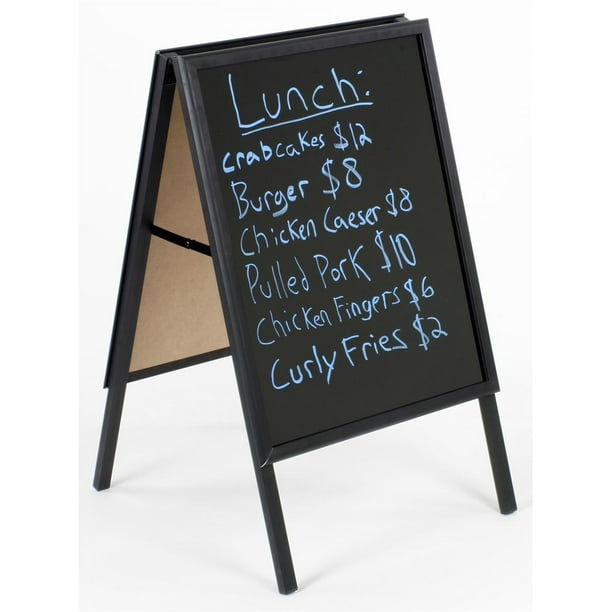 Lunch:
crabcakes $12
Burger $8
Chicken Caeser $8
Pulled Pork $10
Chicken Fingers $6
Curly Fries $2